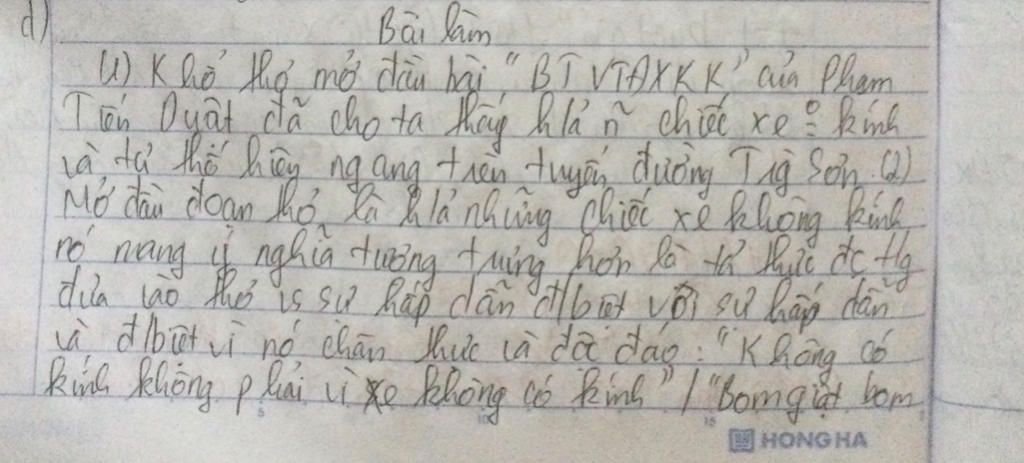 d)
Bài làm
(1) Khổ thơ mở đầu bài "BTVTĐXKK" của Phạm
Tiến Duật đã cho ta thấy h/ả n~ chiếc xe kính
và tư thế hiên ngang trên tuyến đường Tr̀g Sơn. (2)
Mở đầu đoạn thơ là h/ả những chiếc xe không kính
nó mang ý nghĩa tượng trưng hơn là tả thực đc t/g
đưa vào thơ vs sự hấp dẫn đ/biệt với sự hấp dẫn
và đ/biệt vì nó chân thực và độc đáo: "Không có
kính không phải vì xe không có kính" / "Bom giật bom
HONG HA